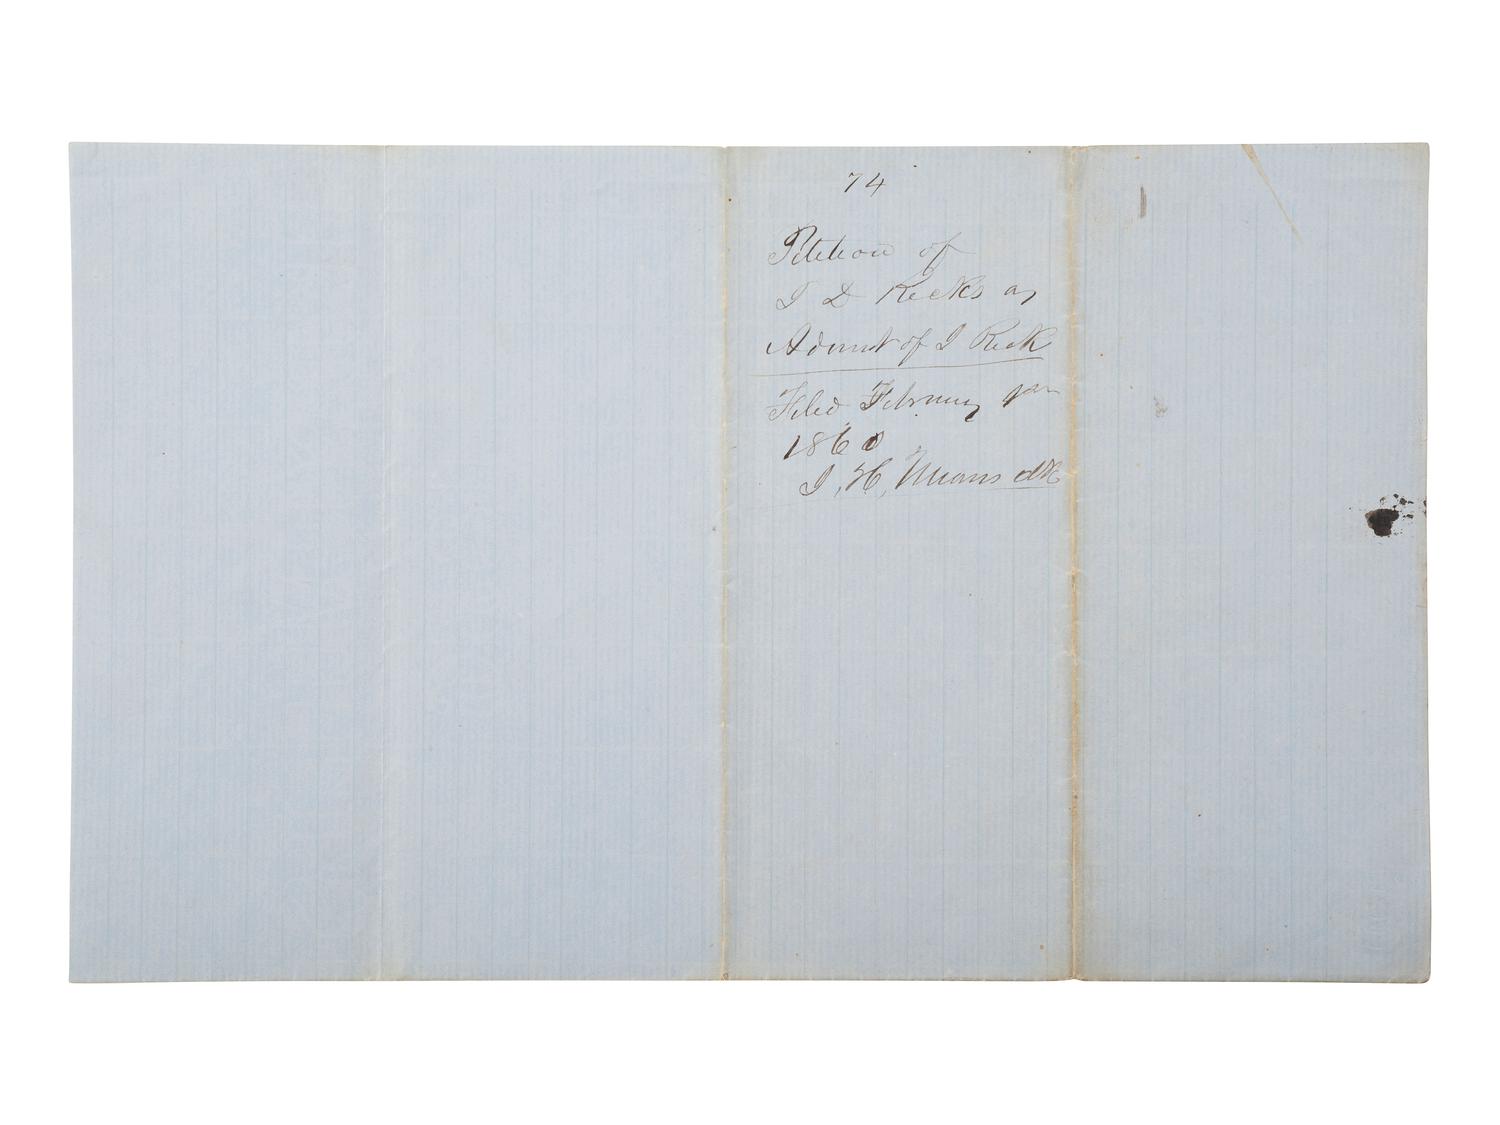 74
Petition of
I D Recks as
Admnt of I Reck
Filed February
1860
I, H, Means clk